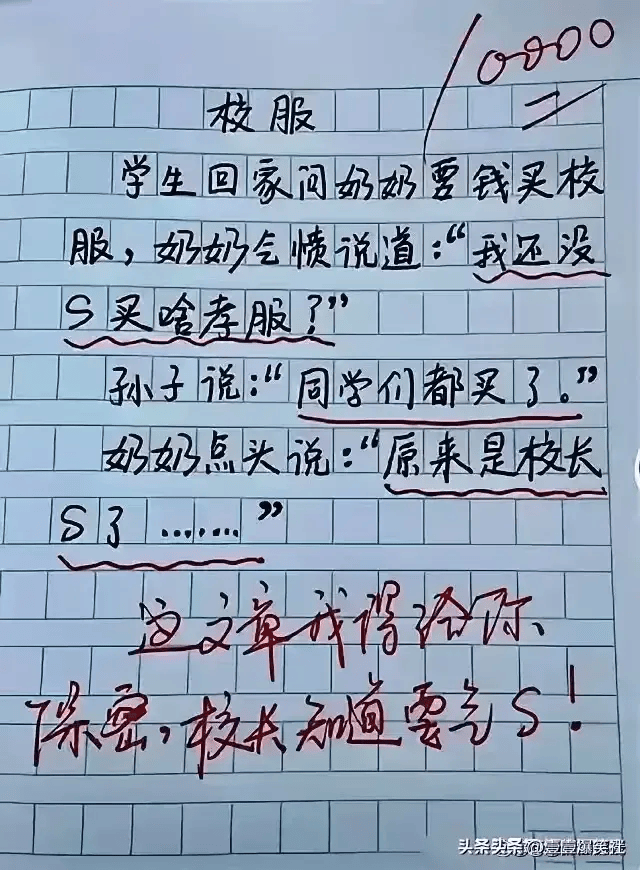 10000
校服
学生回家问奶奶要钱买校
服，奶奶气愤说道：“我还没
S买啥孝服？”
孙子说：“同学们都买了。”
奶奶点头说：“原来是校长
S了.......”
这文章我得给你
保密，校长知道要气S！
头条